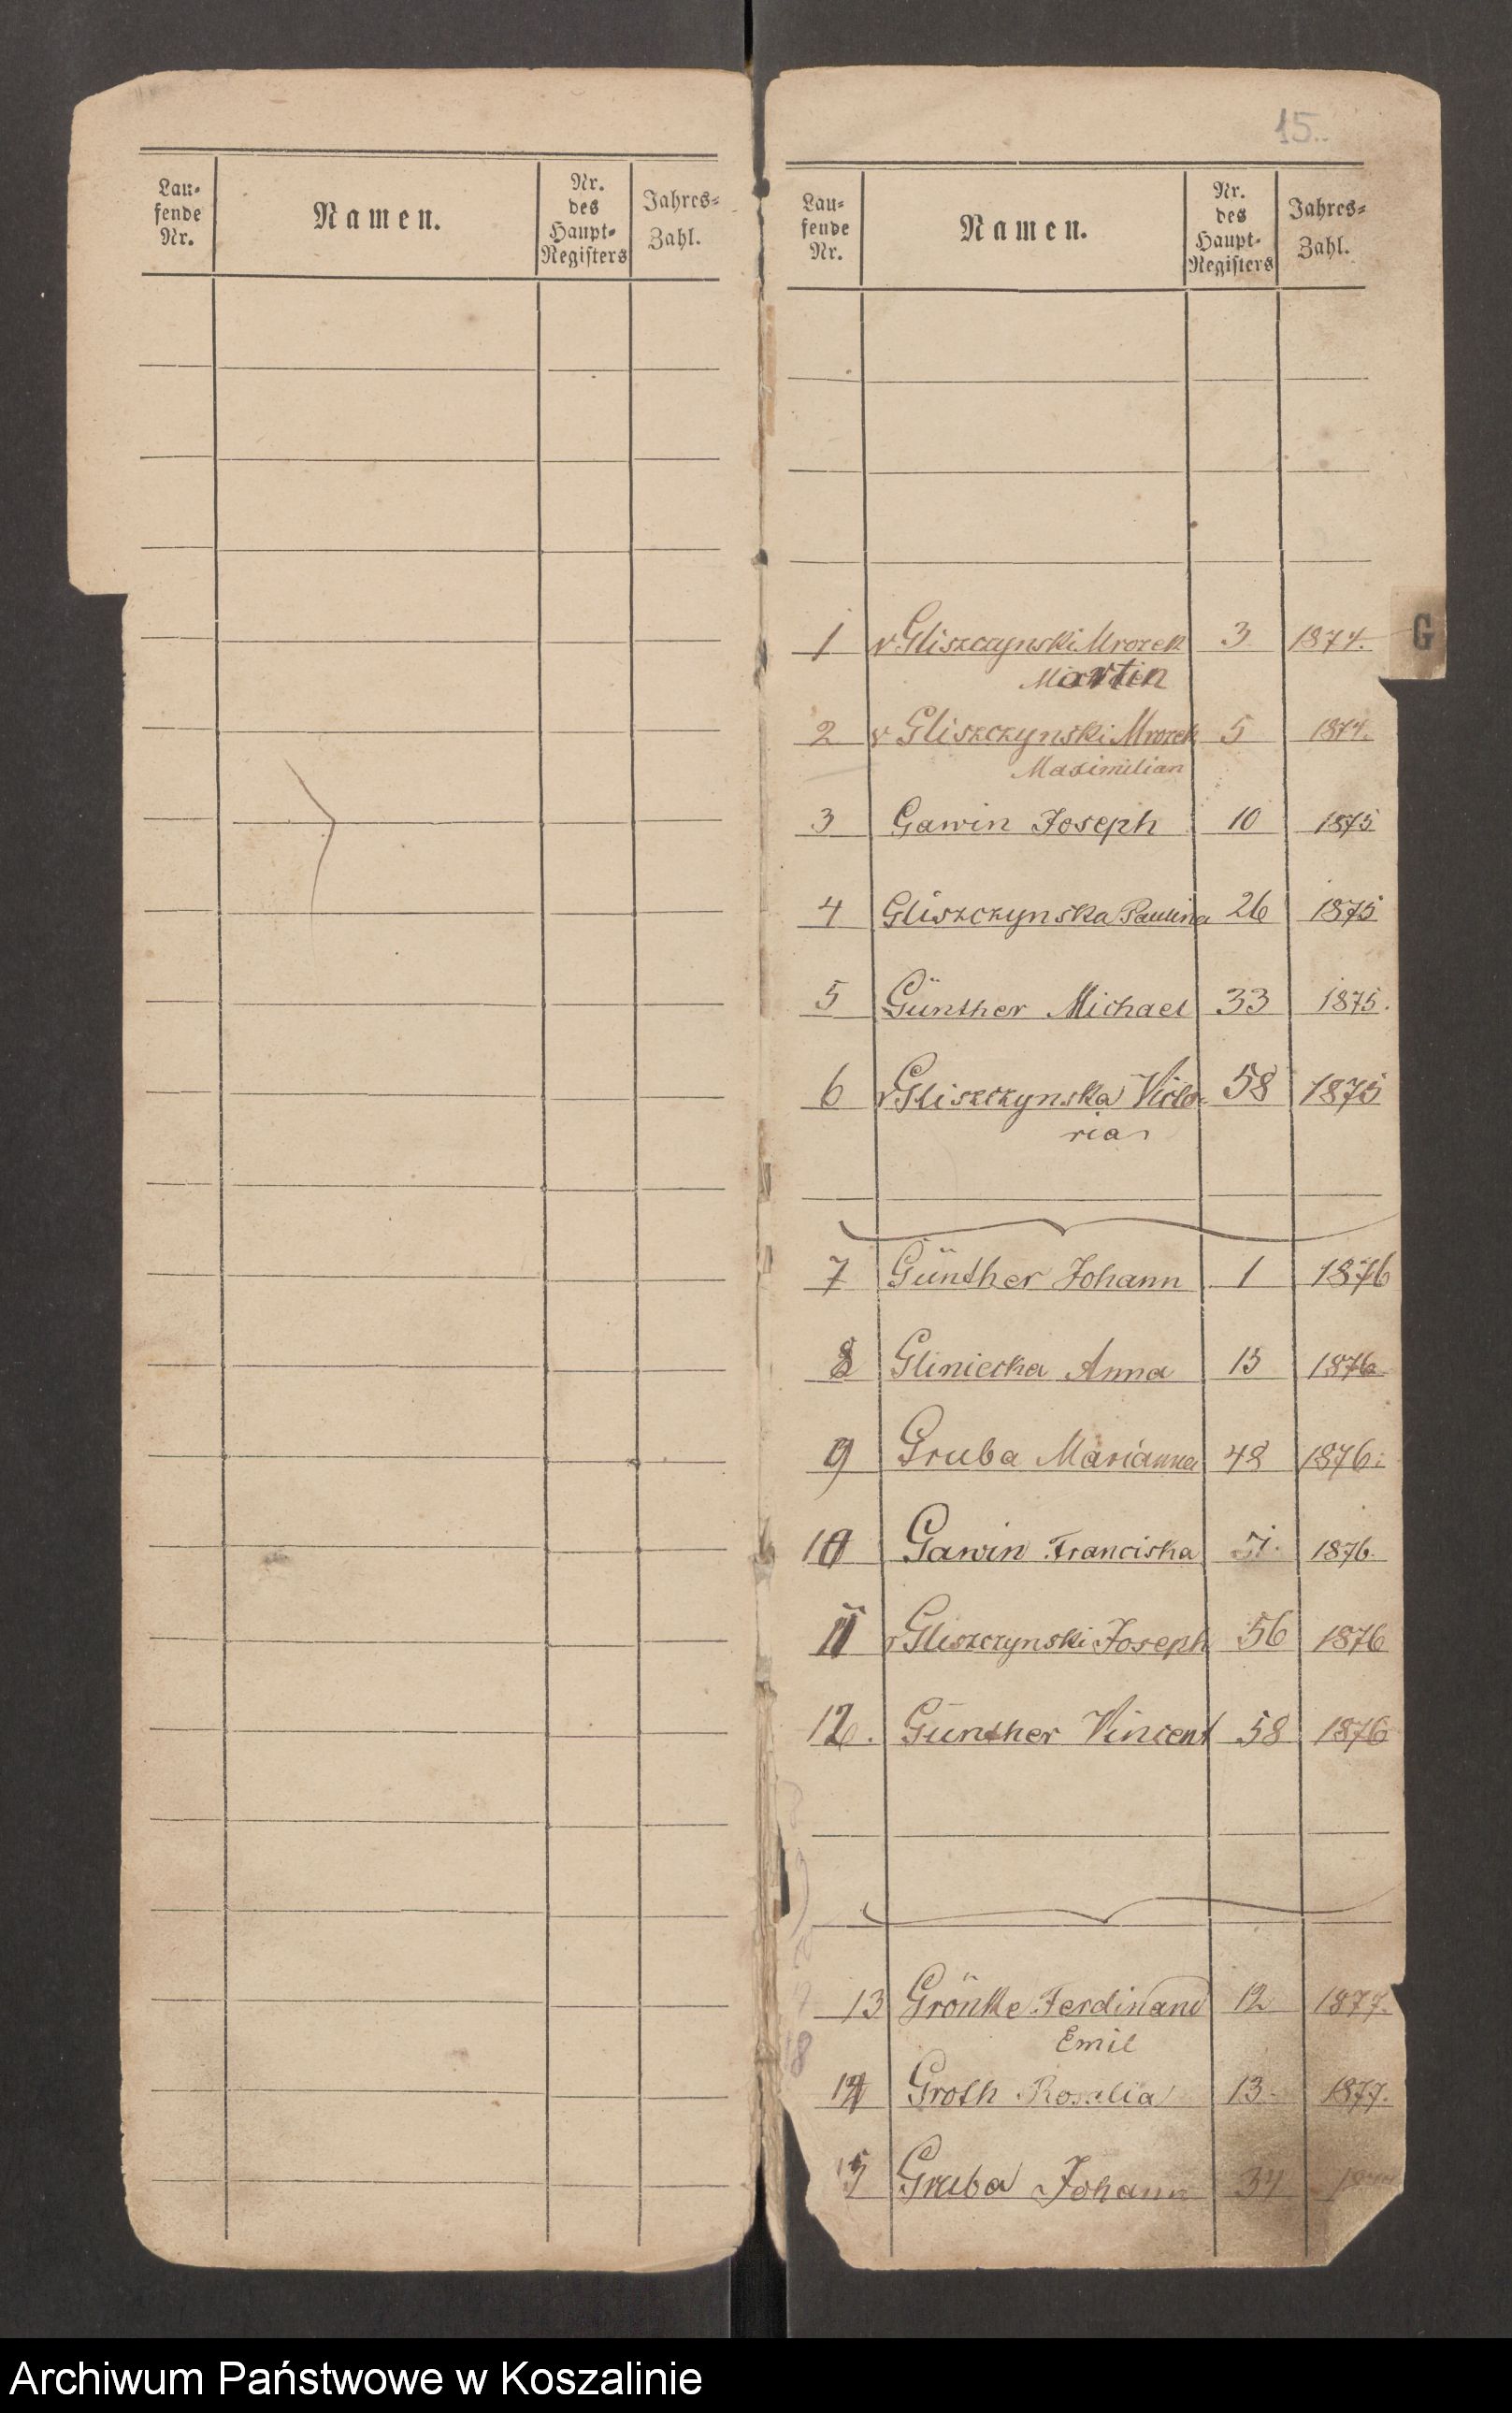 Lau-
fende
Nr.
Namen.
Nr.
des
Haupt-
Registers
Jahres-
Zahl.
15.
Lau-
fende
Nr.
Namen.
Nr.
des
Haupt-
Registers
Jahres-
Zahl.
G
1 v Gliszczynski Mrozek 3 1874.
Martin
2 v Gliszczynski Mrozek 5 1874.
Maximilian
3 Gawin Joseph 10 1875
4 Gliszczynska Paulina 26 1875
5 Günther Michael 33 1875.
6 v Gliszczynska Victo- 58 1875
ria
7 Günther Johann 1 1876
8 Gliniecka Anna 15 1876
9 Gruba Marianna 48 1876.
10 Gawin Franciska 51. 1876.
11 v Gliszczynski Joseph 56 1876
12. Günther Vincent 58 1876
13 Grönke Ferdinand 12 1877.
Emil
14 Groth Rosalia 13. 1877.
15 Gruba Johann 34
Archiwum Państwowe w Koszalinie